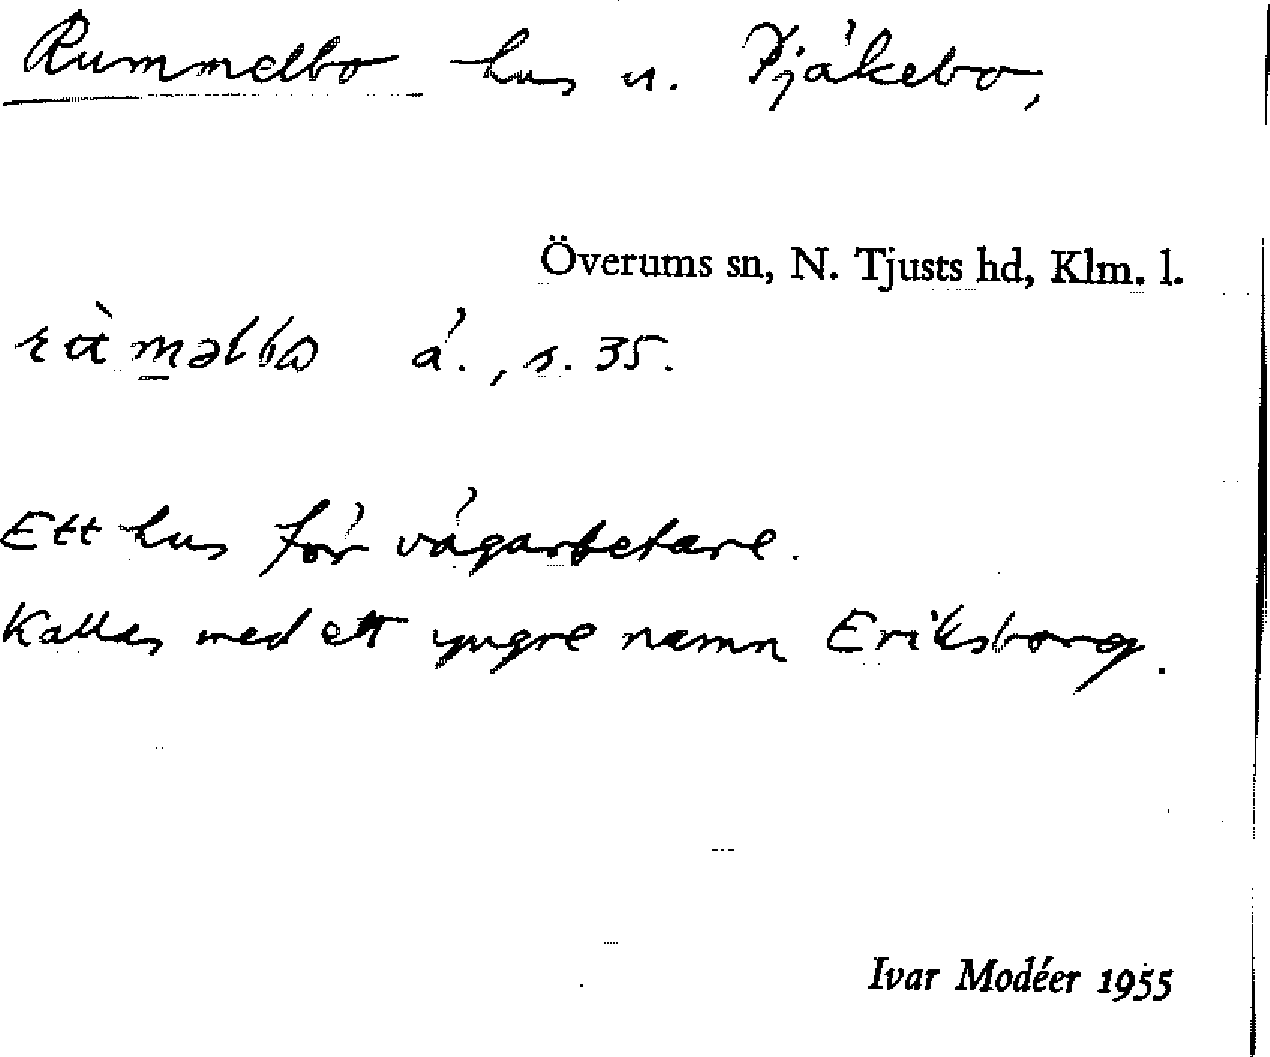 Rummelbo hus u. Pjäkebo,
Överums sn, N. Tjusts hd, Klm. l.
ä., s. 35.
Ett hus för vägarbetare.
Kallas med ett yngre namn Eriksborg.
Ivar Modéer 1955